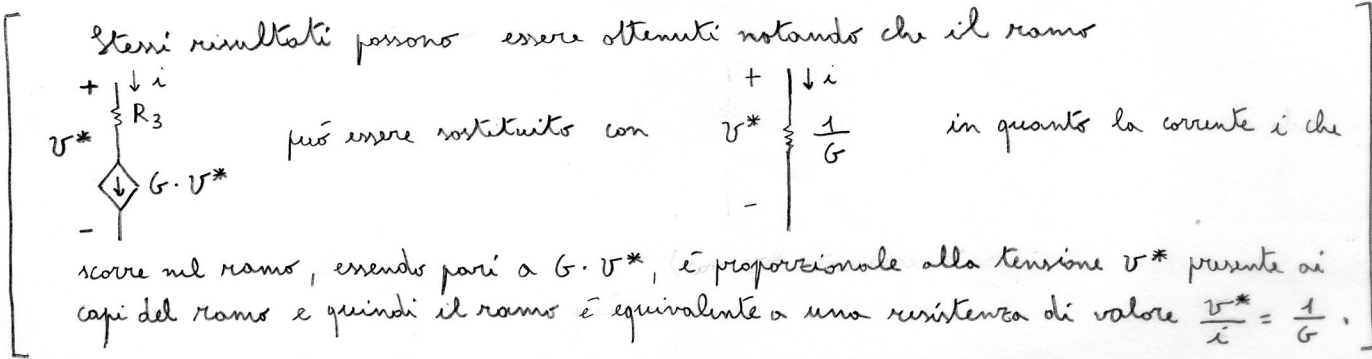 Stessi risultati possono essere ottenuti notando che il ramo
+ ↓ i R3 v* G · v* - può essere sostituito con + ↓ i v* 1/G - in quanto la corrente i che
scorre nel ramo, essendo pari a G · v*, è proporzionale alla tensione v* presente ai
capi del ramo e quindi il ramo è equivalente a una resistenza di valore v*/i = 1/G .